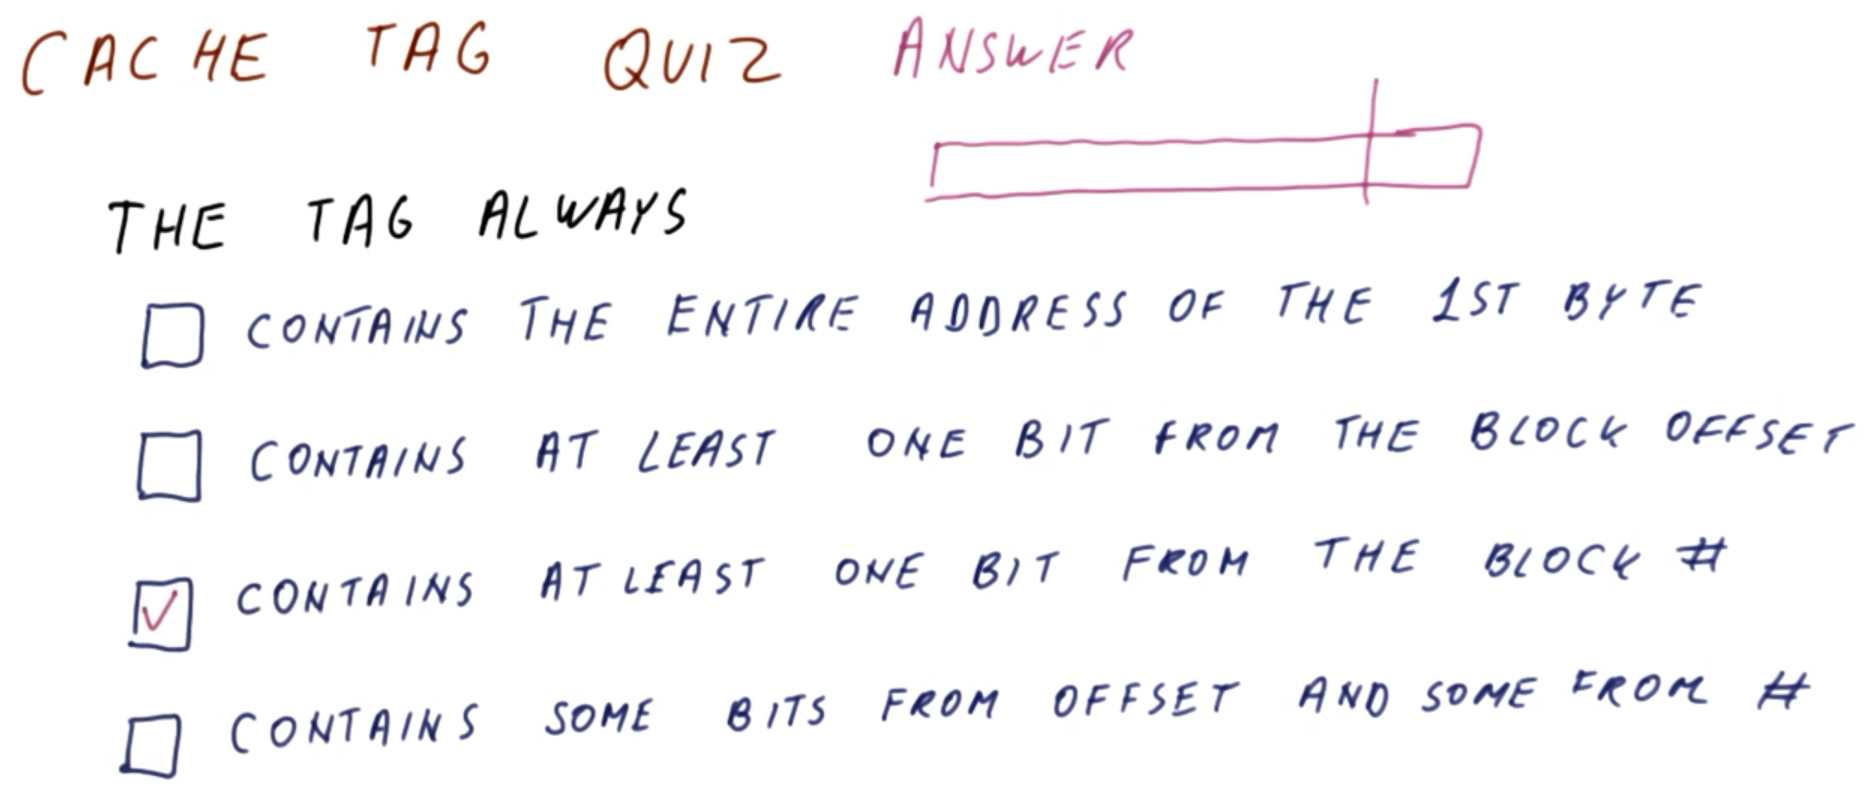 CACHE TAG QUIZ ANSWER
THE TAG ALWAYS
CONTAINS THE ENTIRE ADDRESS OF THE 1ST BYTE
CONTAINS AT LEAST ONE BIT FROM THE BLOCK OFFSET
CONTAINS AT LEAST ONE BIT FROM THE BLOCK #
CONTAINS SOME BITS FROM OFFSET AND SOME FROM #